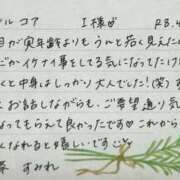 ルコア I様 R8.4
目が実年齢よりもうんと若く見えた
だかイケナイ事をしてる気になってい
くと中身はしっかり大人でした(笑)
お話しながらも、ご希望通り気
なってもらえて良かったです♡ これから
なれると嬉しいです
すみれ